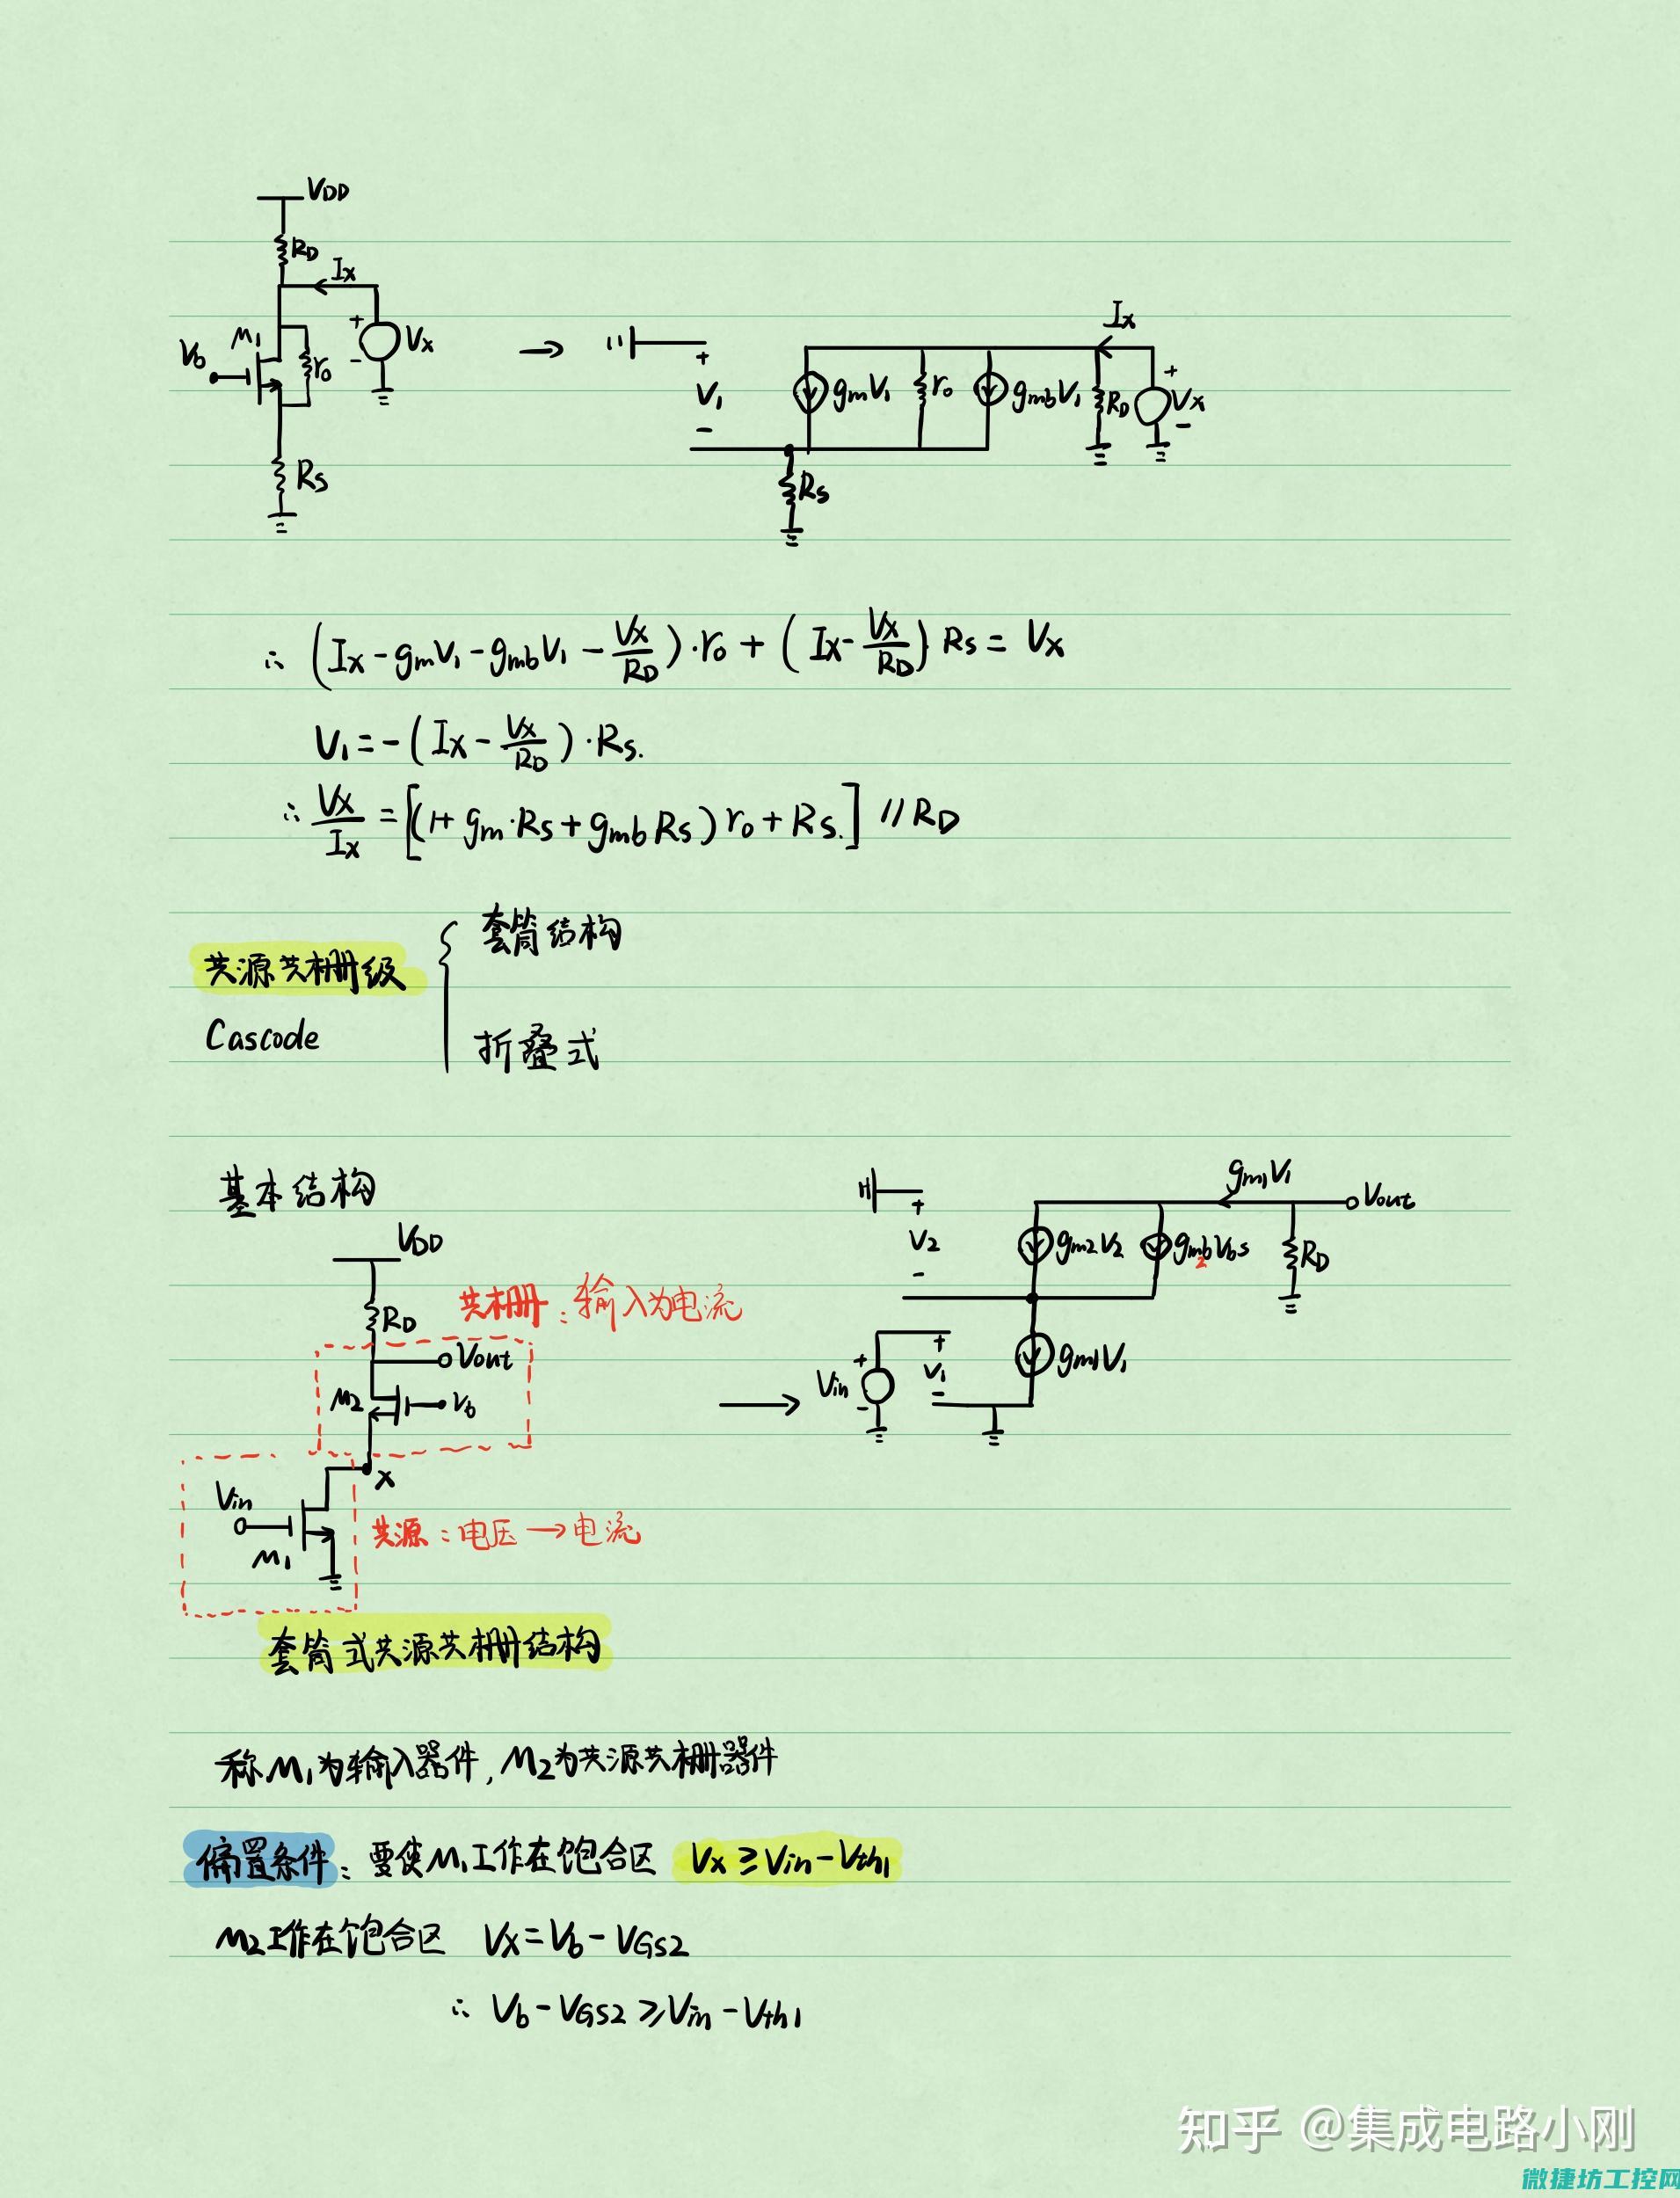 VDD
RD
Ix
M1
Vb
r0
+
-
Vx
Rs
→
+
V1
-
gmV1
r0
gmbV1
RD
Ix
+
Vx
-
Rs
∴ (Ix - gmV1 - gmbV1 - Vx/RD)·r0 + (Ix - Vx/RD) Rs = Vx
V1 = -(Ix - Vx/RD)·Rs.
∴ Vx/Ix = [(1+gm·Rs+gmbRs)r0+Rs.] // RD
共源共栅级 { 套筒结构
Cascode
折叠式
基本结构
VDD
RD
共栅:输入为电流
Vout
M2
Vb
X
Vin
M1
共源:电压→电流
套筒式共源共栅结构
→
+
V2
-
gm2V2
gmb2Vbs
gm1V1
Vout
RD
Vin
+
-
+
V1
-
gm1V1
称M1为输入器件,M2为共源共栅器件
偏置条件:要使M1工作在饱合区 Vx≥Vin-Vth1
M2工作在饱合区 Vx=Vb-VGS2
∴ Vb-VGS2≥Vin-Vth1
知乎 @集成电路小刚
微捷坊工控网